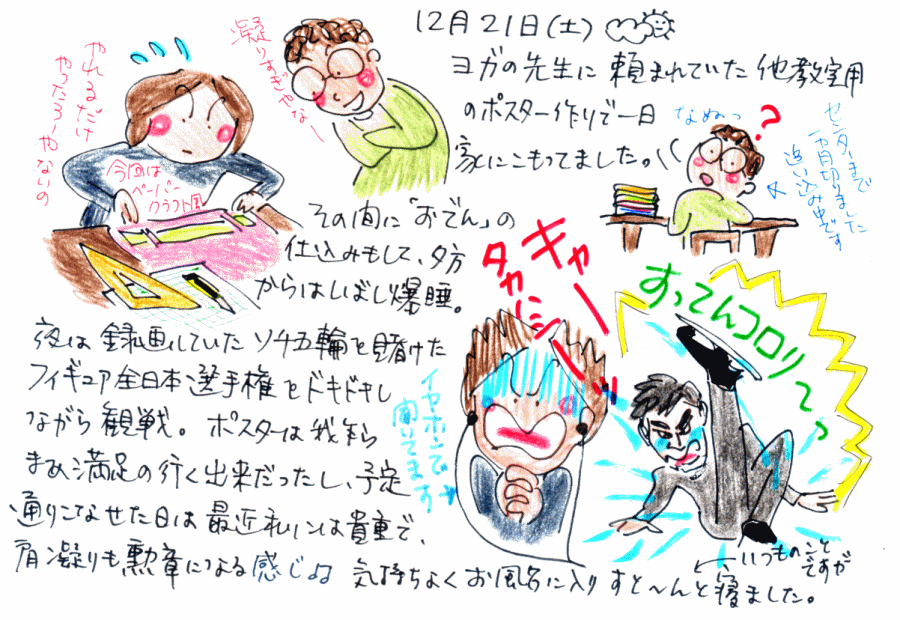 12月21日(土)
ヨガの先生に頼まれていた他教室用
のポスター作りで一日
家にこもってました。
凝り性じゃなー
やれるだけ
やったろーやないの
今回は
ペーパー
クラフト風
なぬっ
?
センターまで
一ヵ月切りました
追い込み中です
その間に「おでん」の
仕込みもして、夕方
からはしばし爆睡。
キャーーッ
タカハシーッ
すってんコロリ〜っ
イヤホンで
聞いてます
夜は録画していたソチ五輪を賭けた
フィギュア全日本選手権をドキドキし
ながら観戦。ポスターは我ながら
まぁ満足の行く出来だったし、予定
通りこなせた日は最近れいんは貴重で、
肩凝りも勲章になる感じよね
気持ちよくお風呂に入りすと〜んと寝ました。
いつものこと
ですが